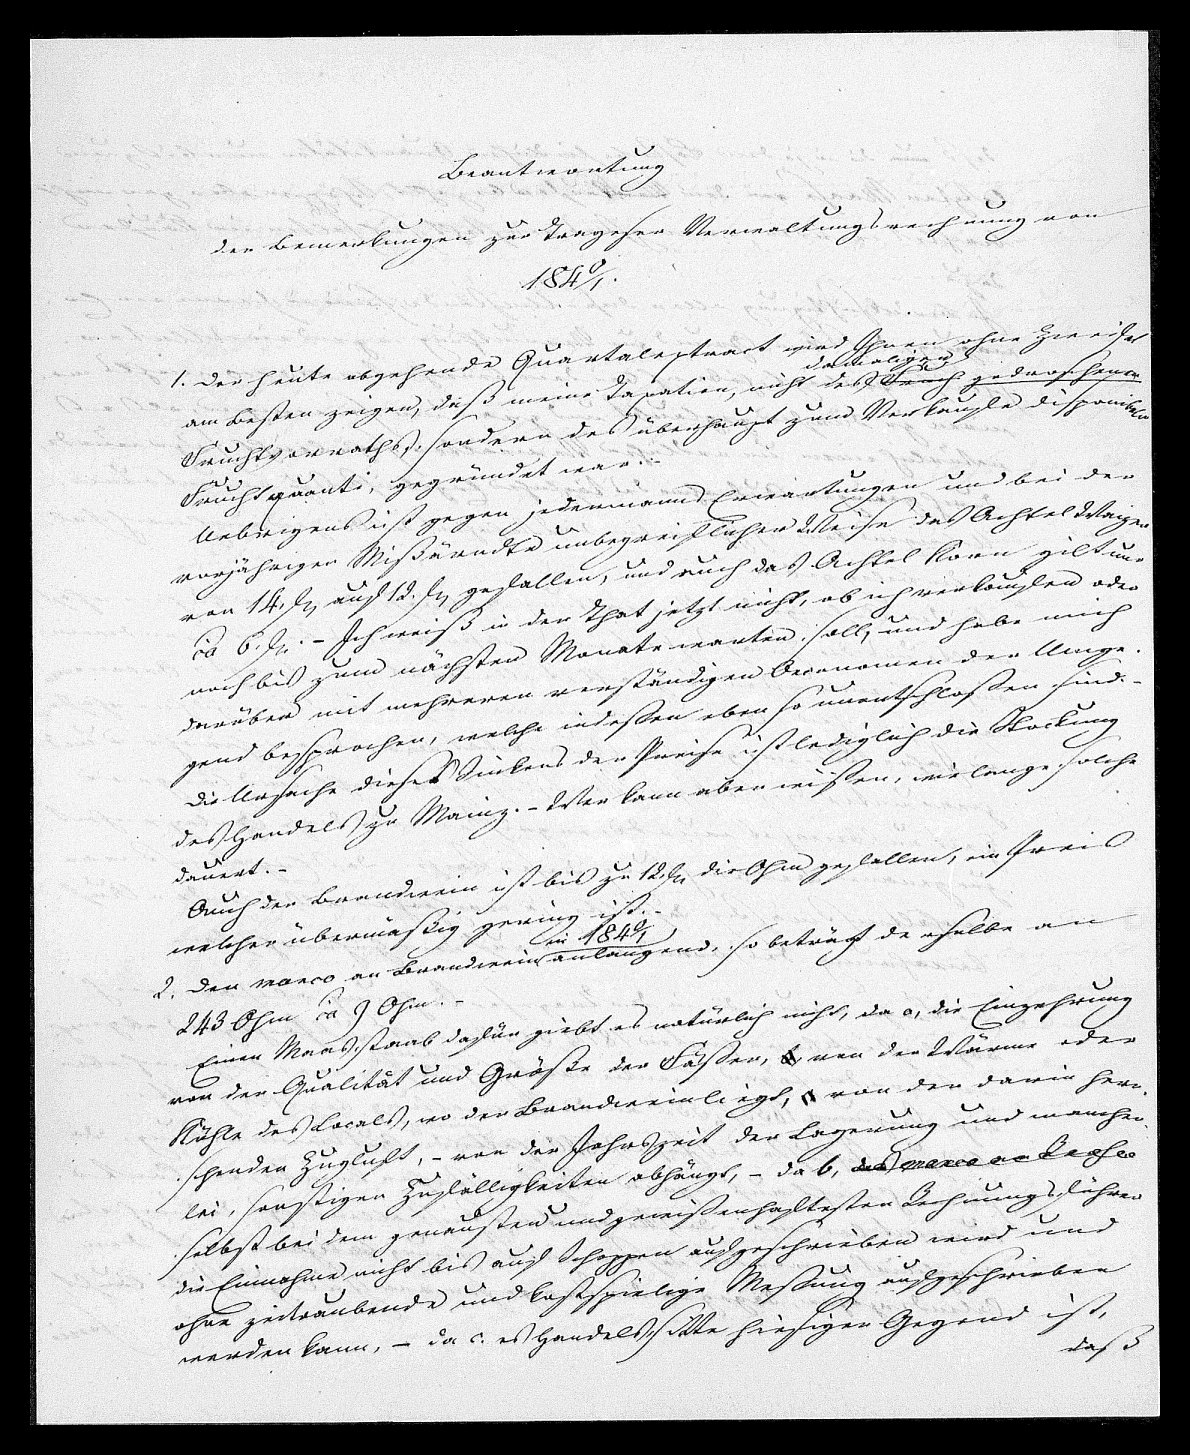 Beantwortung
der Bemerkungen zur Trageser Verwaltungsrechnung von
184 0/1.
1. Der heute abgehende Quartalextract wird Ihnen ohne Zweifel
am besten zeigen, daß meine Taxation, nicht des damaligen gedroschenen
Fruchtvorraths, sondern des überhaupt zum Verkaufe disponibeln
Fruchtquanti, gegründet war.-
Uebrigens ist gegen jedermanns Erwartungen und bei der
vorjährigen Mißärndte unbegreiflicher Weise das Achtel Waizen
von 14. fl auf 12. fl gefallen, und auch das Achtel Korn gilt nur
ca 6. fl. - Ich weiß in der That jetzt nicht, ob ich verkaufen oder
noch bis zum nächsten Monate warten soll, und habe mich
darüber mit mehreren verständigen Oeconomen der Umge-
gend besprochen, welche indessen eben so unentschloßen sind.-
Die Ursache dieses Sinkens der Preise ist lediglich die Stockung
des Handels zu Mainz. - Wer kann aber wißen, wie lange solche
dauert.-
Auch der Brandwein ist bis zu 12. fl die Ohm gefallen, ein Preis
welcher übermäßig gering ist.-
2. Den manco an Brandwein in 184 0/1 anlangend, so beträgt derselbe an
243 Ohm ca 9 Ohm.-
Einen Maasstaab dafür giebt es natürlich nicht, da a, die Einzehrung
von der Qualität und Größe der Fäßer, von der Wärme oder
Kühle des Locals, wo der Brandwein liegt, von der darin herr-
schenden Zugluft, - von der Jahrszeit der Lagerung und mancher-
lei sonstigen Zufälligkeiten abhängt, - da b,
selbst bei dem genausten und gewißenhaftesten Rechnungsführer
die Einnahme nicht bis auf Schoppen aufgeschrieben wird und
ohne zeitraubende und kostspielige Meßung aufgeschrieben
werden kann, - da c. es Handelssitte hiesiger Gegend ist,
daß